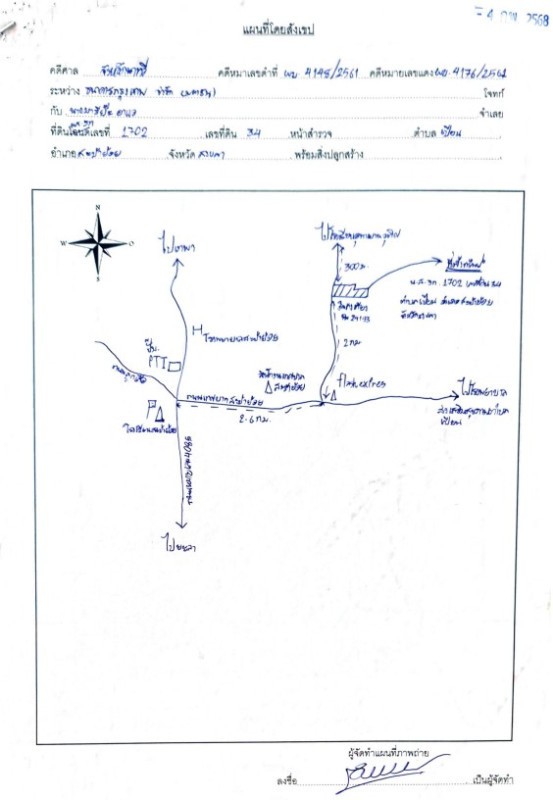 - 4 ก.พ. 2568
แผนที่โดยสังเขป
คดีศาล จังหวัดนาทวี คดีหมายเลขดำที่ ผบ. 4198/2561 คดีหมายเลขแดง ผบ. 4176/2561
ระหว่าง ธนาคารกรุงเทพ จำกัด (มหาชน) โจทก์
กับ จำเลย
ที่ดิน 1702 เลขที่ดิน 34 หน้าสำรวจ ตำบล เปียน
อำเภอ สะบ้าย้อย จังหวัด สงขลา พร้อมสิ่งปลูกสร้าง
N
W O
S
ไปเทพา
300 ม.
ที่ตั้งทรัพย์
น.ส.3ก. 1702 เลขที่ดิน 34
ตำบลเปียน อำเภอสะบ้าย้อย
จังหวัดสงขลา
2 กม
H โรงพยาบาลสะบ้าย้อย
ปั๊ม
PTT
สะบ้าย้อย
flash express
ถนนเทศบาลสะบ้าย้อย
2.6 กม.
ไปโรงพยาบาล
เปียน
P
ถนนหมายเลข 4085
ไปยะลา
ผู้จัดทำแผนที่ภาพถ่าย
ลงชื่อ เป็นผู้จัดทำ